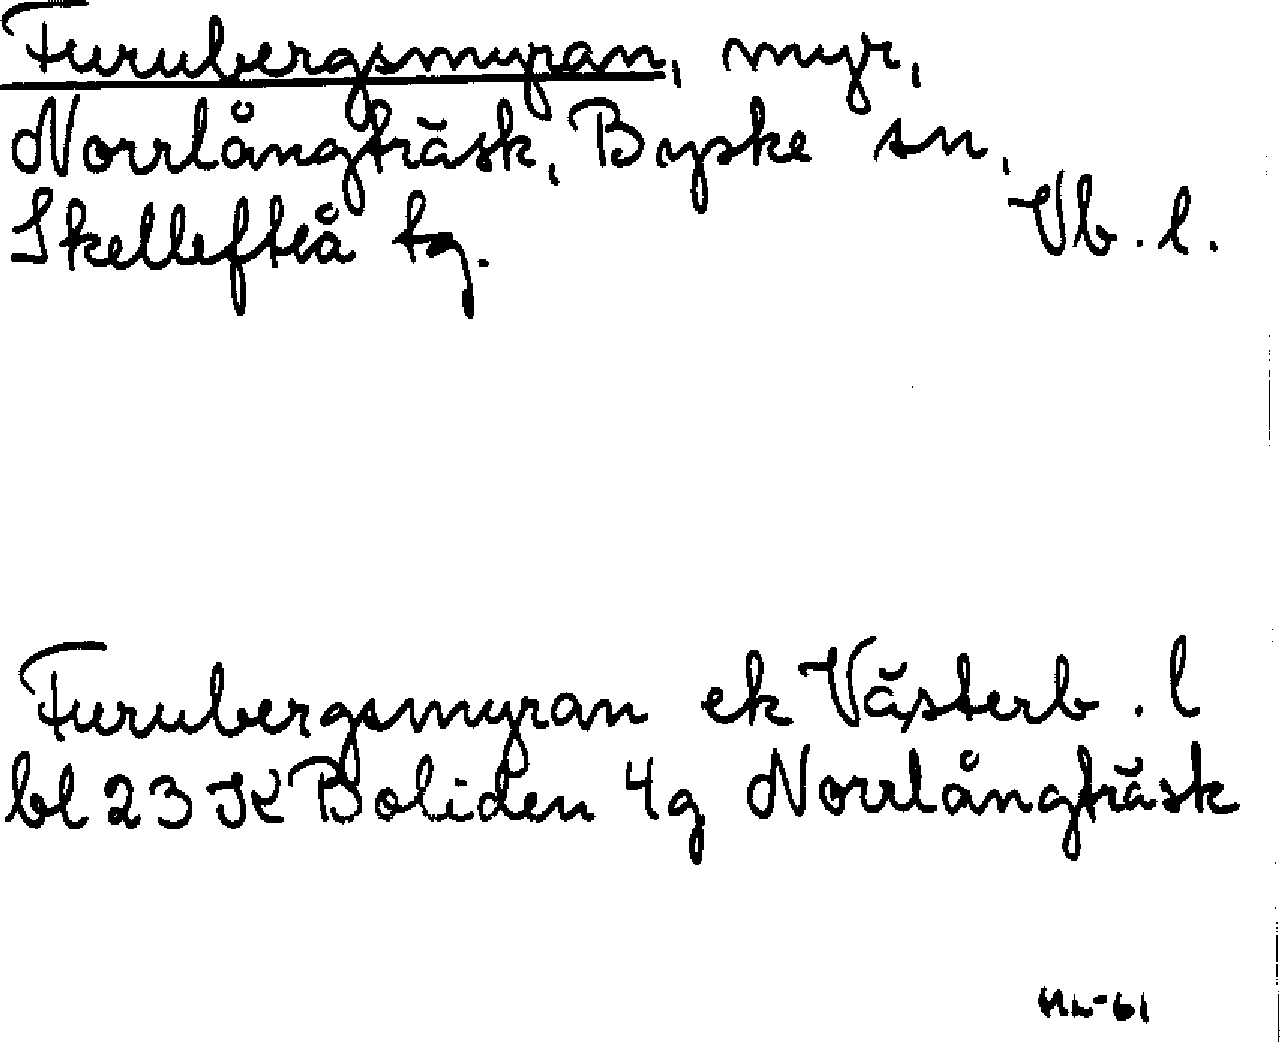 Furubergsmyran, myr,
Norrlångträsk, Byske sn,
Skellefteå tg. Vb. l.
Furubergsmyran ek Västerb. l
bl 23 K Boliden 4g Norrlångträsk